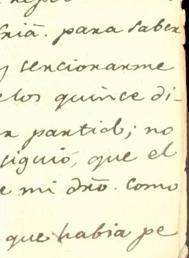 rriã. para saber
y sencionarme
elos quince di-
n partido; no
siguió, que el
e mi dro. como
que habia pe